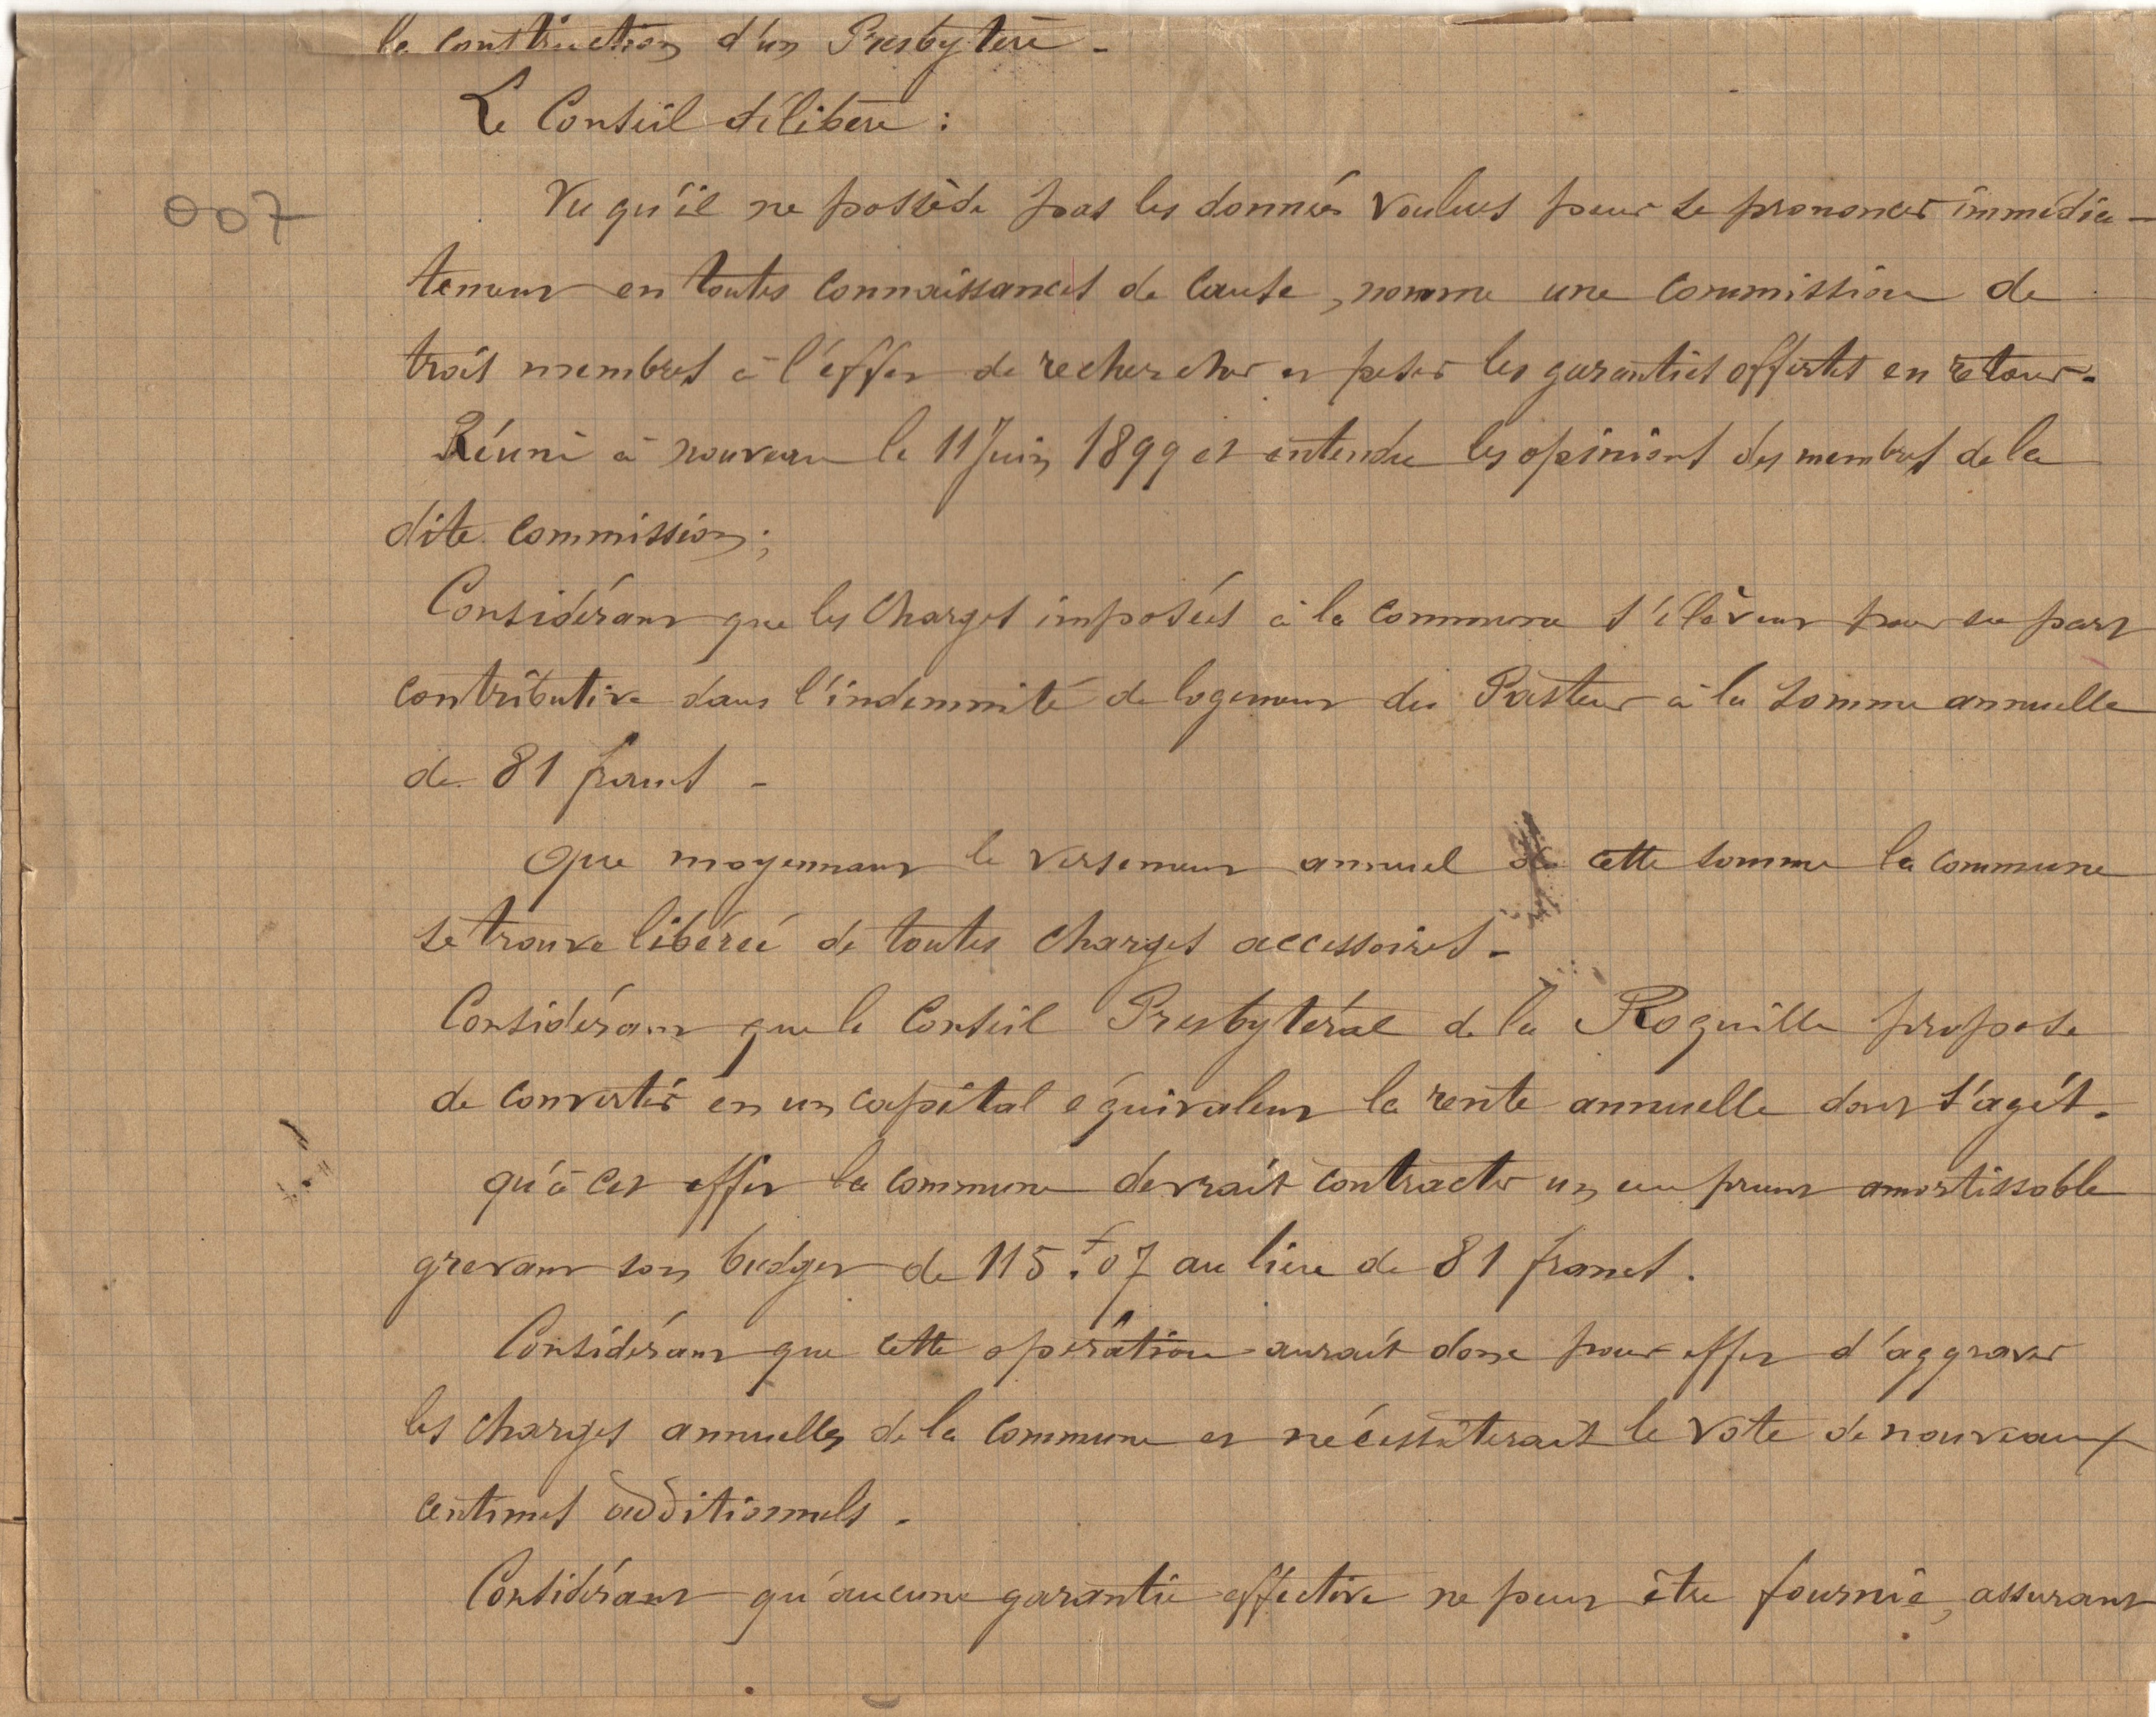 la construction d'un Presbytère -
Le Conseil délibère :
007
Vu qu'il ne possède pas les données voulues pour se prononcer immédia-
tement en toutes connaissances de cause, nomme une commission de
trois membres à l'effet de rechercher et peser les garanties offertes en retour.
Réuni à nouveau le 11 Juin 1899 et entendu les opinions des membres de la
dite commission;
Considérant que les charges imposées à la commune s'élèvent pour sa part
contributive dans l'indemnité de logement du Pasteur à la somme annuelle
de 81 francs -
Que moyennant le versement annuel de cette somme la commune
se trouve libérée de toutes charges accessoires -
Considérant que le Conseil Presbytéral de la Roquille propose
de convertir en un capital équivalent la rente annuelle dont s'agit.
qu'à cet effet la commune devrait contracter un emprunt amortissable
grevant son budget de 115.f07 au lieu de 81 francs.
Considérant que cette opération aurait donc pour effet d'aggraver
les charges annuelles de la commune et nécessiterait le vote de nouveaux
centimes additionnels -
Considérant qu'aucune garantie effective ne peut être fournie, assurant